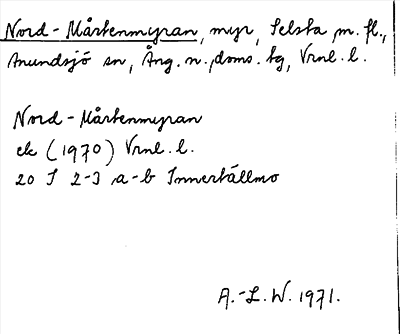 Nord-Mårtenmyran, myr, Selsta m. fl.,
Anundsjö sn, Ång. n. doms. tg, Vrnl. l.
Nord-Mårtenmyran
ek (1970) Vrnl. l.
20 I 2-3 a-b Innertällmo
A.-L. W. 1971.